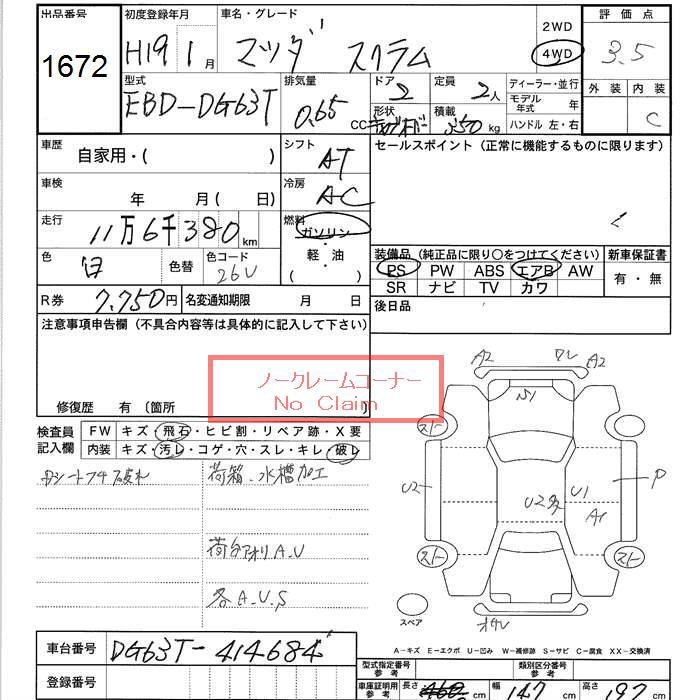 出品番号
1672
初度登録年月
H19 1月
車名・グレード
マツダ スクラム
2WD
4WD
評価点
3.5
外装 内装
C
型式
EBD-DG63T
排気量
0.65
CC
ドア
2
定員
2人
形状
積載
350kg
ディーラー・並行
モデル年式 年
ハンドル 左・右
車歴
自家用・( )
シフト
AT
セールスポイント（正常に機能するものに限ります）
車検
年 月( 日)
冷房
AC
走行
11万6千380km
燃料
ガソリン・
軽・油
( )
色
白
色替
色コード
26U
装備品（純正品に限り○をつけてください）
新車保証書
PS PW ABS エアB AW
SR ナビ TV カワ
有・無
R券
7,750円
名変通知期限 月 日
後日品
注意事項申告欄（不具合内容等は具体的に記入して下さい）
ノークレームコーナー
No Claim
修復歴 有 〔箇所
検査員記入欄
FW キズ・飛石・ヒビ割・リペア跡・X要
内装 キズ・汚レ・コゲ・穴・スレ・キレ・破レ
荷箱、水槽加工
荷台アオリA.U
各A.U.S
A2
ワレ
A2
S1
スト
U2
U2多
U1
A1
P
スト
スト
スペア
A－キズ E－エクボ U－凹み W－補修跡 S－サビ C－腐食 XX－交換済
車台番号
DG63T-414684
登録番号
型式指定番号 参考
類別区分番号 参考
車庫証明用 参考
長さ cm
幅 147 cm
高さ 197 cm